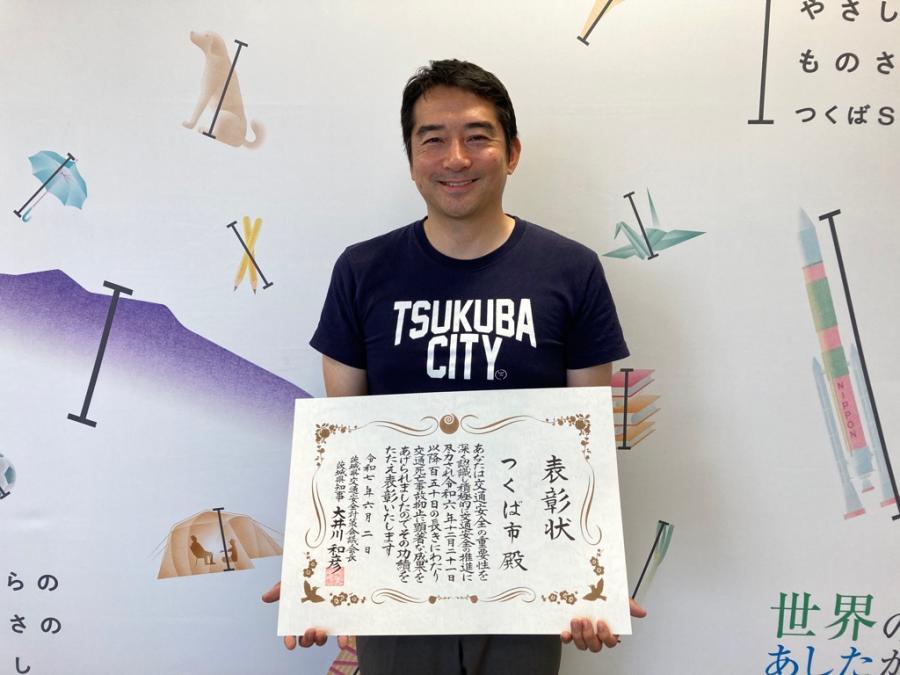 やさし
ものさ
つくばS
TSUKUBA
CITY
NIPPON
表彰状
つくば市 殿
あなたは交通安全の重要性を
深く認識し積極的に交通安全の推進に
尽力され令和六年十二月二十一日
以降百五十日の長きにわたり
交通死亡事故抑止に顕著な成果を
あげられましたのでその功績を
たたえ表彰いたします
令和七年六月二日
茨城県交通安全対策会議会長
茨城県知事 大井川和彦
らの
さの
し
世界の
あしたが